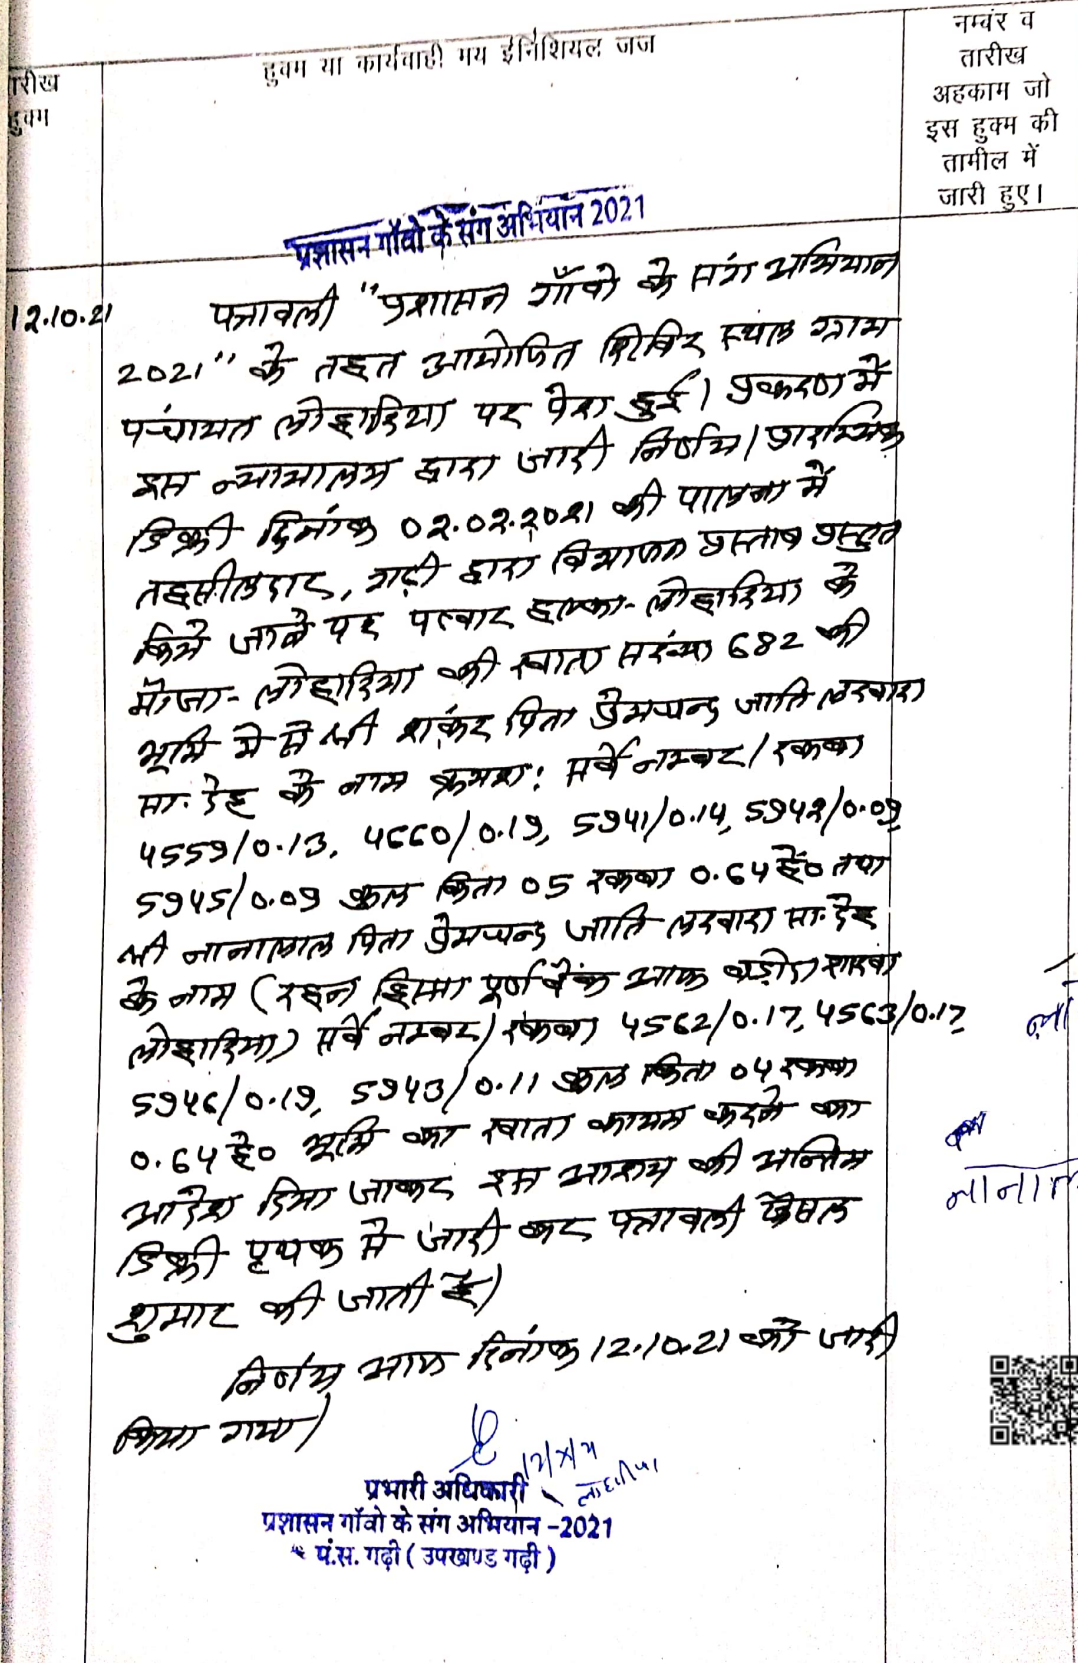 तारीख
हुक्म
हुक्म या कार्यवाही मय ईनिशियल जज
नम्वंर व
तारीख
अहकाम जो
इस हुक्म की
तामील में
जारी हुए।
प्रशासन गॉवो के संग अभियान 2021
12.10.21
पत्रावली "प्रशासन गाँवो के संग अभियान
2021" के तहत आयोजित शिविर स्थल ग्राम
पंचायत लोहारिया पर पेश हुई। प्रकरण में
इस न्यायालय द्वारा जारी निर्णय/प्रारम्भिक
डिक्री दिनांक 02.02.2021 की पालना में
तहसीलदार, गढ़ी द्वारा विभाजन प्रस्ताव प्रस्तुत
किये जाने पर पटवार हल्का-लोहारिया के
मौजा-लोहारिया की खाता संख्या 682 की
भूमि मे से श्री शंकर पिता प्रेमचन्द जाति लखारा
सा.देह के नाम क्रमशः सर्वे नम्बर/रकबा
4559/0.13, 4660/0.19, 5941/0.14, 5942/0.09,
5945/0.09 कुल किता 05 रकबा 0.64 है० तथा
श्री नानालाल पिता प्रेमचन्द जाति लखारा सा.देह
के नाम (रहन हिस्सा पूर्ण बैंक आफ बड़ोदा शाखा
लोहारिया) सर्वे नम्बर/रकबा 4562/0.17, 4563/0.17,
5946/0.19, 5943/0.11 कुल किता 04 रकबा
0.64 है० भूमि का खाता कायम करने का
आदेश दिया जाकर इस आशय की अन्तिम
डिक्री पृथक से जारी कर पत्रावली फैसल
शुमार की जाती है।
निर्णय आज दिनांक 12.10.21 को जारी
किया गया।
प्रभारी अधिकारी
प्रशासन गॉवो के संग अभियान -2021
पं.स. गढ़ी ( उपखण्ड गढ़ी )